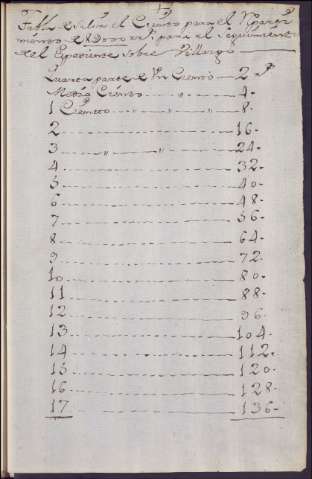 Tabla de salir el Cientto para el Repartimiento de
para el Seguimiento
del Expediente sobre
Quarta parte de Un Cientto 2
Medio Cientto 4
1 Cientto 8
2 16
3 24
4 32
5 40
6 48
7 56
8 64
9 72
10 80
11 88
12 96
13 104
14 112
15 120
16 128
17 136